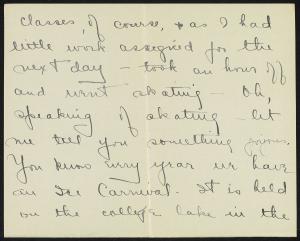 classes, of course, & as I had
little work assigned for the
next day — took an hour off
and went skating — Oh,
speaking of skating — let
me tell you something
You know every year we have
an Ice Carnival. It is held
on the college lake in the